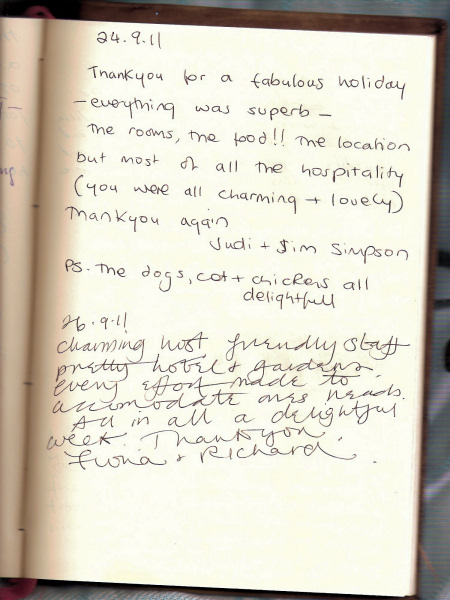 24.9.11
Thankyou for a fabulous holiday
- everything was superb -
The rooms, the food!! The location
but most of all the hospitality
(you were all charming + lovely)
Thankyou again
Judi + Jim Simpson
PS. The dogs, cat + chickens all
delightfull
26.9.11
charming host friendly staff
pretty hotel & gardens.
every effort made to
accomodate ones needs.
All in all a delightful
week. Thankyou.
Fiona & Richard.